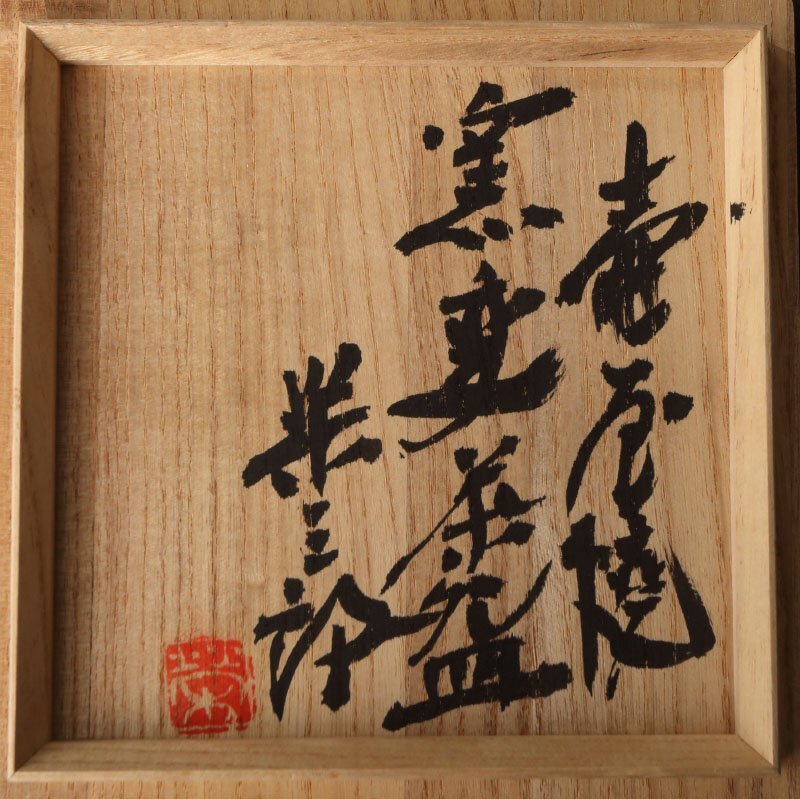 壷屋焼
窯変茶盌
興三郎